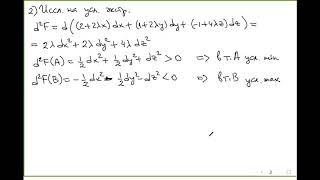 2) Иссл. на усл. экстр.
d²F = d((2+2λx)dx + (1+2λy)dy + (-1+4λz)dz) =
= 2λdx² + 2λdy² + 4λdz²
d²F(A) = ½dx² + ½dy² + dz² > 0 => в т. A усл. min
d²F(B) = -½dx² - ½dy² - dz² < 0 => в т. B усл. max